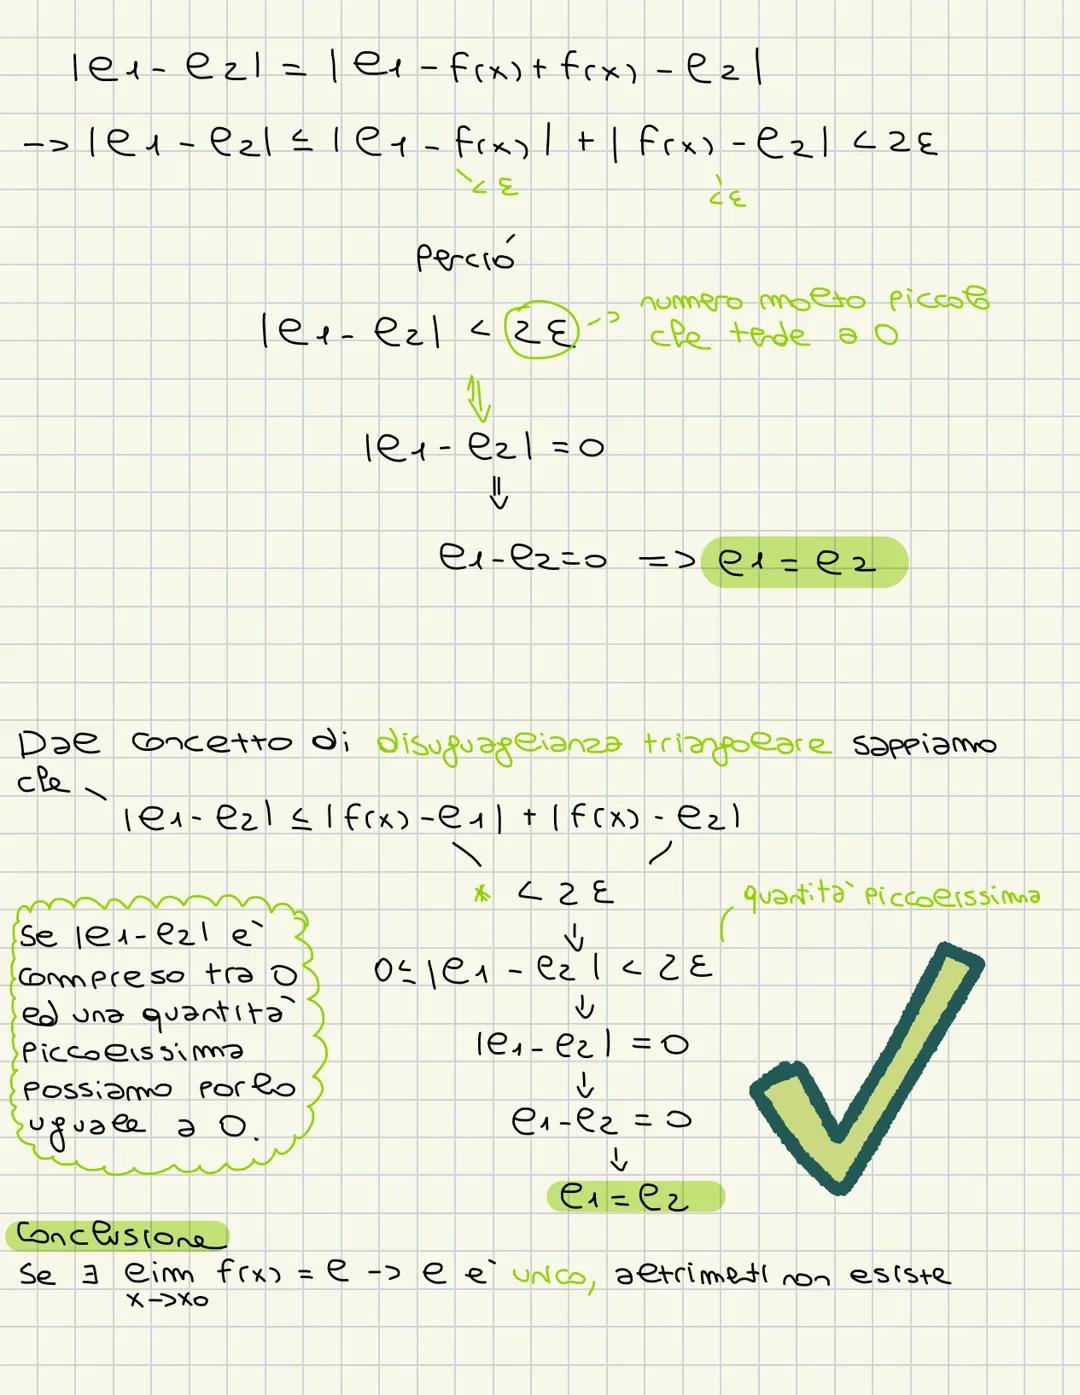 |l1 - l2| = |l1 - f(x) + f(x) - l2|
-> |l1 - l2| ≤ |l1 - f(x)| + |f(x) - l2| < 2ε
< ε < ε
Perció
|l1 - l2| < 2ε -> numero molto piccolo
che tende a 0
⇓
|l1 - l2| = 0
⇓
l1 - l2 = 0 => l1 = l2
Dal concetto di disuguaglianza triangolare sappiamo
che
|l1 - l2| ≤ |f(x) - l1| + |f(x) - l2|
* < 2ε
quantità piccolissima
↓
0 ≤ |l1 - l2| < 2ε
↓
|l1 - l2| = 0
↓
l1 - l2 = 0
↓
l1 = l2
Se |l1 - l2| e`
compreso tra 0
ed una quantità
piccolissima
possiamo porlo
uguale a 0.
Conclusione
Se ∃ lim f(x) = l -> l e` unico, altrimenti non esiste
x->x0